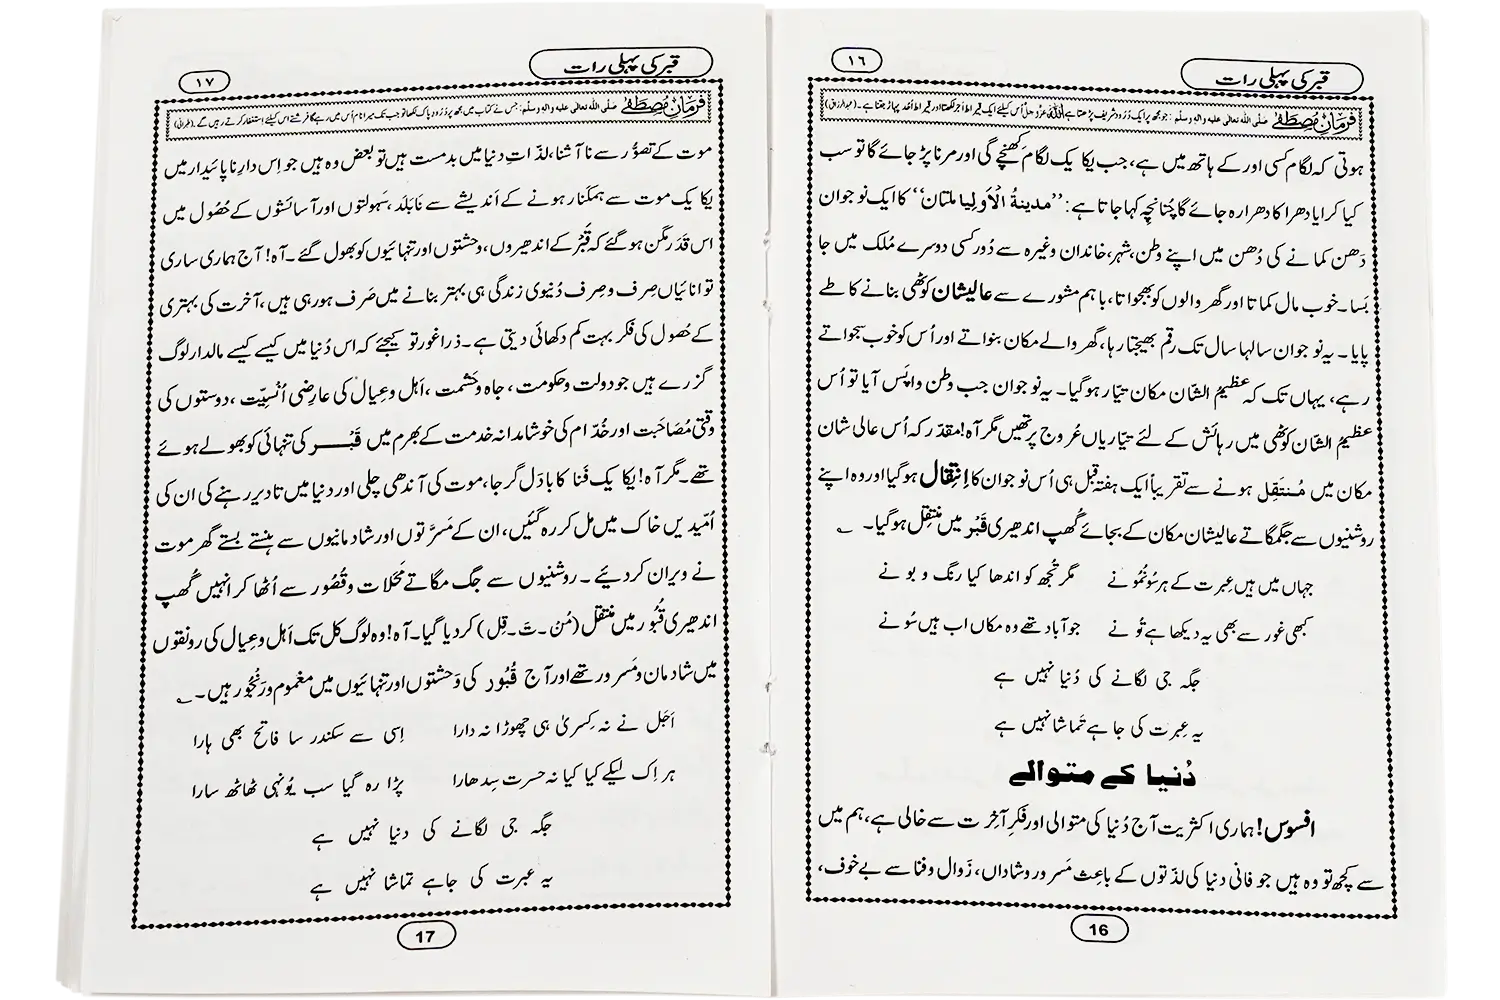 ۱۶
قبر کی پہلی رات
فرمانِ مُصطَفٰے صلی اللہ تعالی علیہ والہ وسلم : جو مجھ پر ایک دُرُود شریف پڑھتا ہے اللہ عزوجل اُس کیلئے ایک قیراط اجر لکھتا اور قیراط اُحد پہاڑ جتنا ہے۔ (عبدالرزاق)
ہوتی کہ لگام کسی اور کے ہاتھ میں ہے، جب یکا یک لگام کھنچے گی اور مرنا پڑ جائے گا تو سب
کیا کرایا دھرا کا دھرا رہ جائے گا چُنانچِہ کہا جاتا ہے: ’’مدینۃُ الْاَولیا ملتان‘‘ کا ایک نوجوان
دَھن کمانے کی دُھن میں اپنے وطن، شہر، خاندان وغیرہ سے دُور کسی دوسرے مُلک میں جا
بَسا۔ خوب مال کماتا اور گھر والوں کو بھجواتا، باہم مشورے سے عالیشان کوٹھی بنانے کا طے
پایا۔ یہ نوجوان سالہا سال تک رقم بھیجتا رہا، گھر والے مکان بنواتے اور اُس کو خوب سجواتے
رہے، یہاں تک کہ عظیمُ الشّان مکان تیّار ہوگیا۔ یہ نوجوان جب وطن واپَس آیا تو اُس
عظیمُ الشّان کوٹھی میں رہائش کے لئے تیّاریاں عُروج پر تھیں مگر آہ! مقدّر کہ اُس عالی شان
مکان میں مُنتَقِل ہونے سے تقریباً ایک ہفتہ قبل ہی اُس نوجوان کا اِنتِقال ہوگیا اور وہ اپنے
روشنیوں سے جگمگاتے عالیشان مکان کے بجائے گُھپ اندھیری قَبْر میں منتقِل ہوگیا۔ ؎
جہاں میں ہیں عِبرت کے ہر سُو نُمُونے مگر تُجھ کو اندھا کیا رنگ و بو نے
کبھی غور سے بھی یہ دیکھا ہے تُو نے جو آباد تھے وہ مکاں اب ہیں سُونے
جگہ جی لگانے کی دُنیا نہیں ہے
یہ عِبرت کی جا ہے تَماشا نہیں ہے
دُنیا کے متوالے
افسوس! ہماری اکثریت آج دُنیا کی متوالی اور فکرِ آخِرت سے خالی ہے، ہم میں
سے کچھ تو وہ ہیں جو فانی دنیا کی لذّتوں کے باعِث مَسرور و شاداں، زَوال و فنا سے بے خوف،
16
۱۷
قبر کی پہلی رات
فرمانِ مُصطَفٰے صلی اللہ تعالی علیہ والہ وسلم : جس نے کتاب میں مجھ پر دُرُود پاک لکھا تو جب تک میرا نام اُس میں رہے گا فرشتے اس کیلئے استغفار کرتے رہیں گے۔ (طبرانی)
موت کے تصوُّر سے نا آشنا، لذّاتِ دنیا میں بدمست ہیں تو بعض وہ ہیں جو اِس دارِ ناپائیدار میں
یکا یک موت سے ہمکَنار ہونے کے اَندیشے سے نابَلَد، سَہولتوں اور آسائشوں کے حُصُول میں
اس قَدَر مگن ہوگئے کہ قَبْر کے اندھیروں، وحشتوں اور تنہائیوں کو بھول گئے۔ آہ! آج ہماری ساری
توانائیاں صِرف و صِرف دُنیوی زندگی ہی بہتر بنانے میں صَرف ہورہی ہیں، آخرت کی بہتری
کے حُصُول کی فکر بہت کم دکھائی دیتی ہے۔ ذرا غور تو کیجئے کہ اس دُنیا میں کیسے کیسے مالدار لوگ
گزرے ہیں جو دولت و حکومت، جاہ و حَشمت، اَہل و عِیال کی عارضی اُنْسِیّت، دوستوں کی
وقتی مُصَاحَبت اور خُدّام کی خوشامدانہ خدمت کے بھرم میں قَبْر کی تنہائی کو بھولے ہوئے
تھے۔ مگر آہ! یکا یک فَنا کا بادَل گرجا، موت کی آندھی چلی اور دنیا میں تادیر رہنے کی ان کی
اُمّیدیں خاک میں مل کر رہ گئیں، ان کے مَسرَّتوں اور شادمانیوں سے ہنستے بستے گھر موت
نے ویران کر دئیے۔ روشنیوں سے جگمگاتے مَحَلّات و قُصُور سے اُٹھا کر انہیں گُھپ
اندھیری قُبُور میں منتقل (مُنْ ۔ تَ ۔ قِل) کر دیا گیا۔ آہ! وہ لوگ کل تک اَہل و عِیال کی رونقوں
میں شادمان و مَسرور تھے اور آج قُبُور کی وَحشتوں اور تنہائیوں میں مغموم و رَنْجُور ہیں۔ ؎
اَجَل نے نہ کِسریٰ ہی چھوڑا نہ دارا اِسی سے سکندر سا فاتِح بھی ہارا
ہر اِک لیکے کیا کیا نہ حسرت سِدھارا پڑا رہ گیا سب یُونہی ٹھاٹھ سارا
جگہ جی لگانے کی دنیا نہیں ہے
یہ عبرت کی جا ہے تماشا نہیں ہے
17